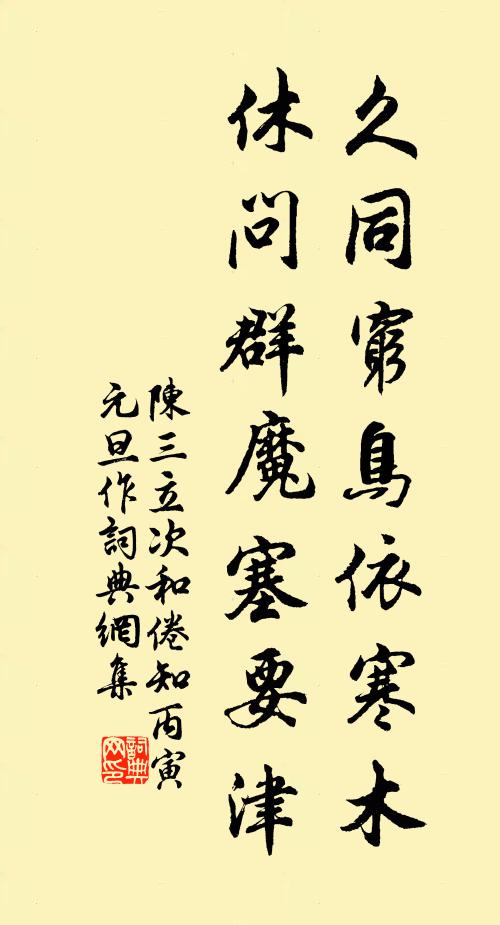 久同窮鳥依寒木
休問群魔塞要津
陳三立次和倦知丙寅
元旦作詞典網集
詞典
網印